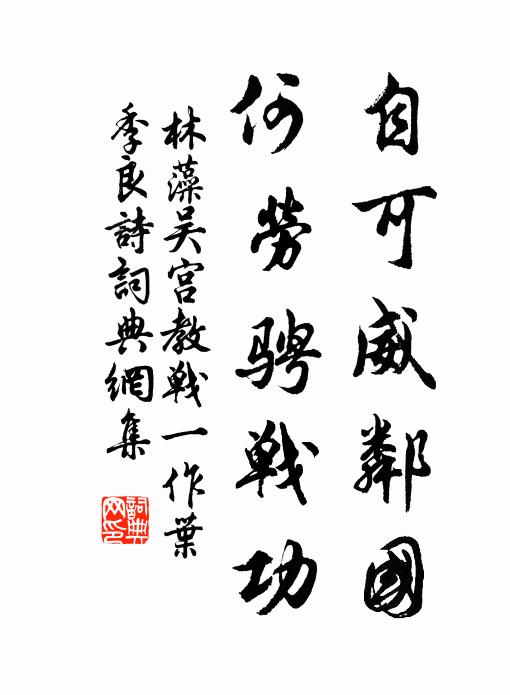 自可威鄰國
何勞騁戰功
林藻吴宫教戰一作葉
季良詩詞典網集
詞典